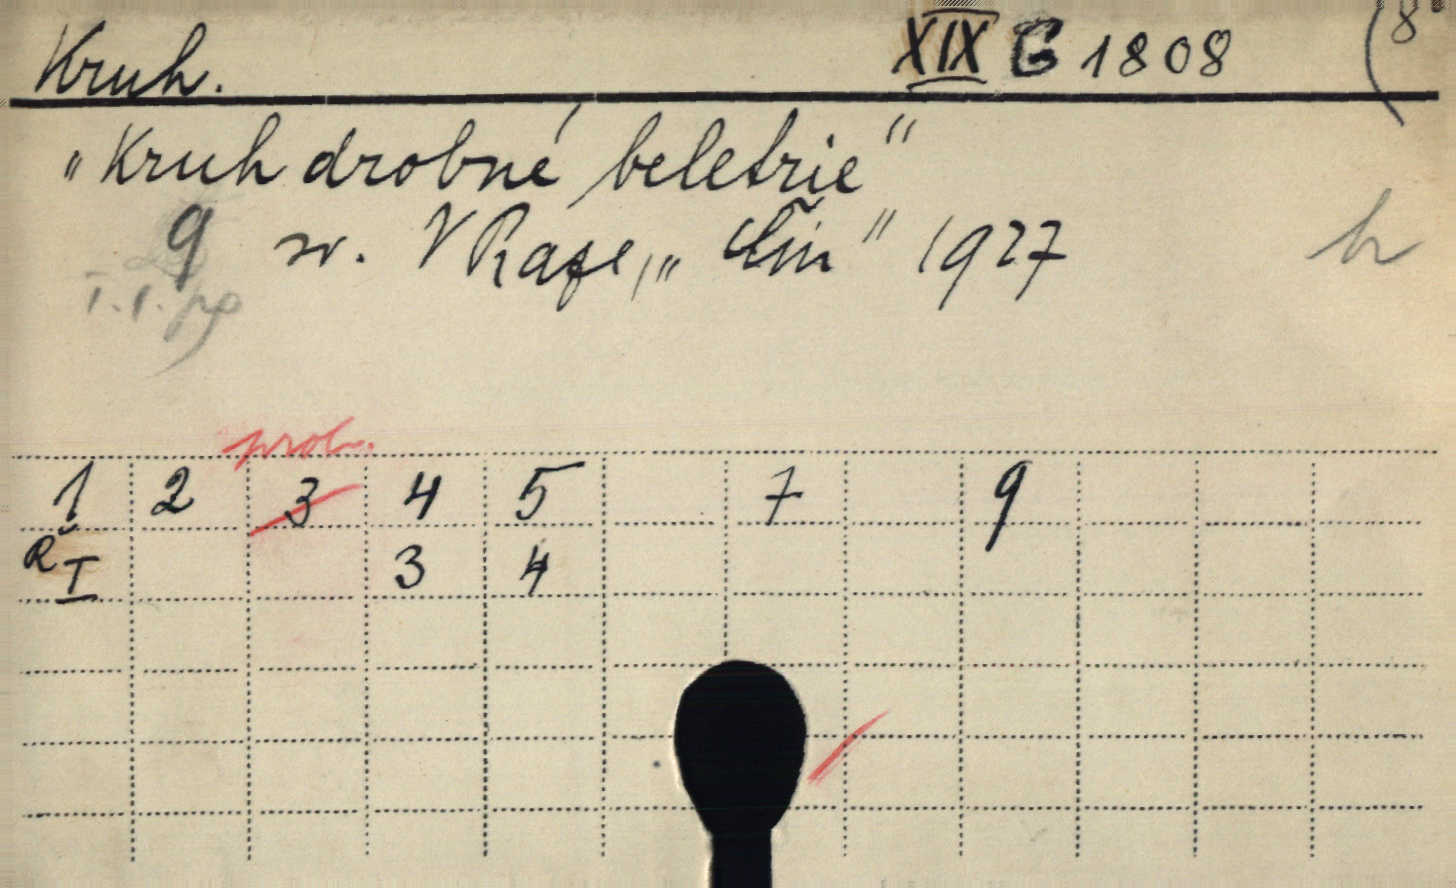 Kruh. XIX G 1808 (8°
„Kruh drobné beletrie“
9 sv. V Praze, „Čin“ 1927
I.1.
prob.
1 2 3 4 5 7 9
Ř I 3 4